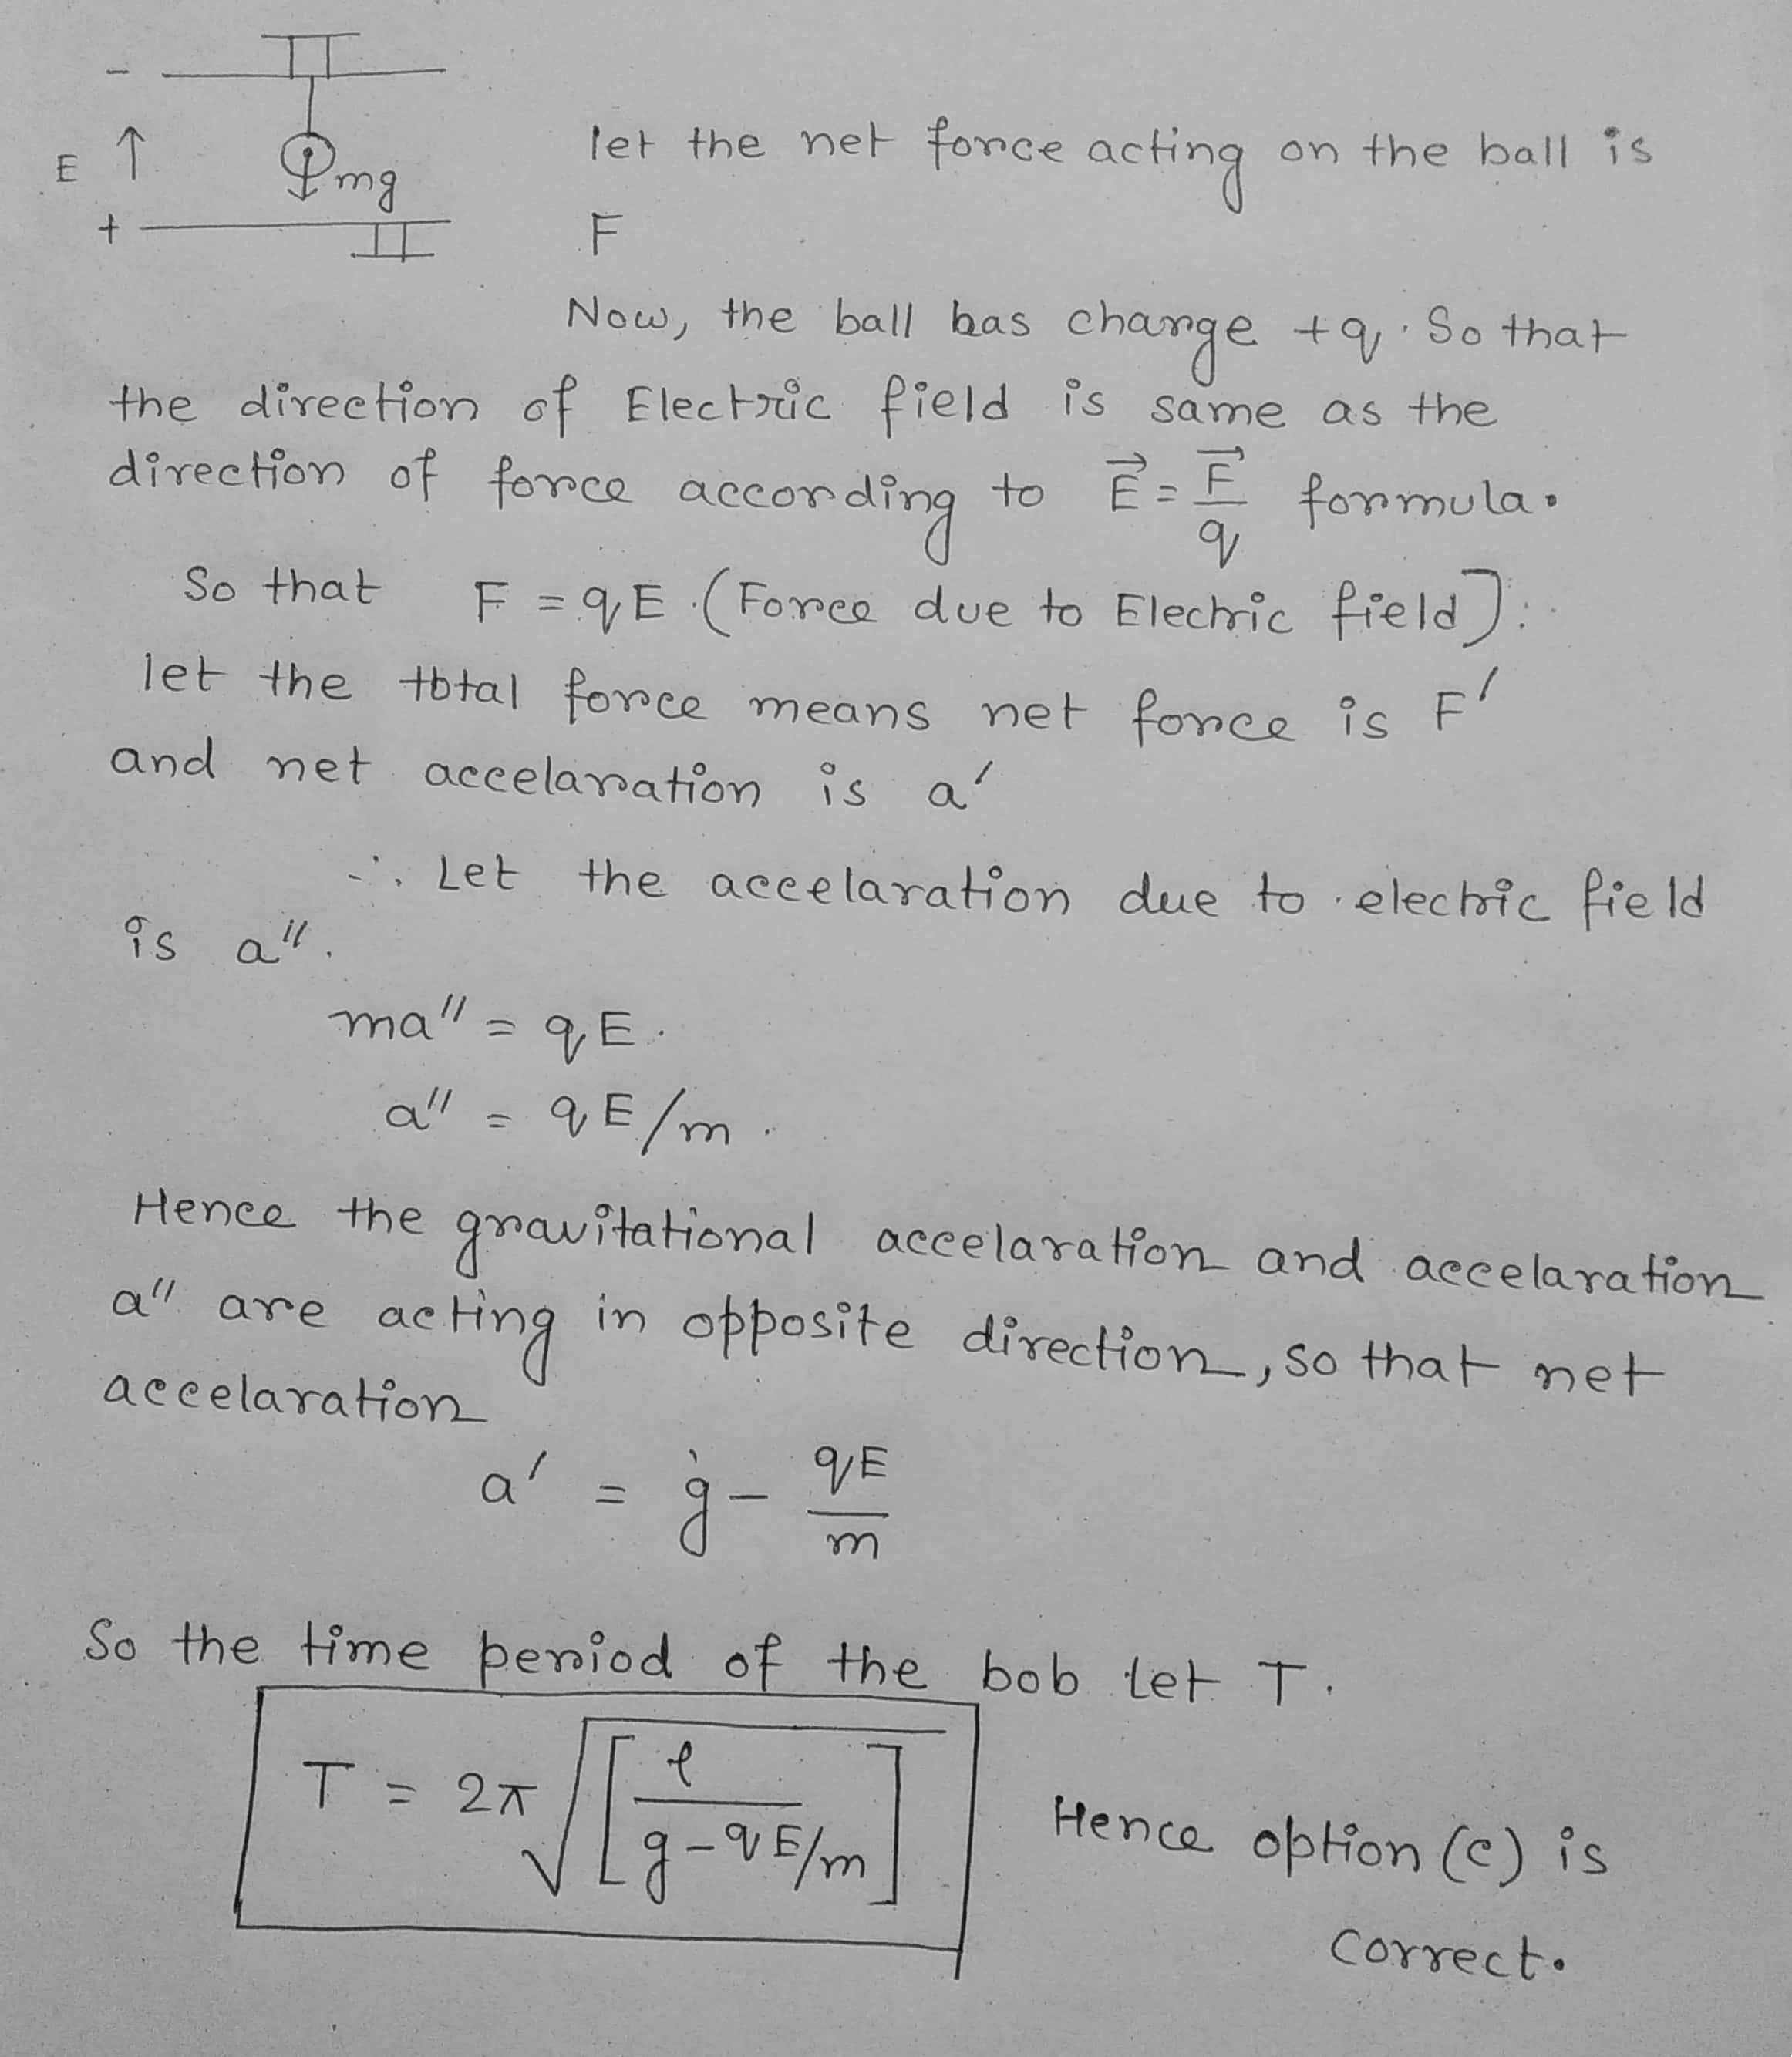 -
E ↑ mg
+
let the net force acting on the ball is
F
Now, the ball has change +q. So that
the direction of Electric field is same as the
direction of force according to E⃗ = F⃗/q formula.
So that F = qE. (Force due to Electric field]:
let the total force means net force is F'
and net accelaration is a'
∴ Let the accelaration due to electric field
is a".
ma" = qE.
a" = qE/m.
Hence the gravitational accelaration and accelaration
a" are acting in opposite direction, so that net
accelaration
a' = g - qE/m
So the time period of the bob let T.
T = 2π√[ℓ/(g-qE/m)]
Hence option (c) is
correct.